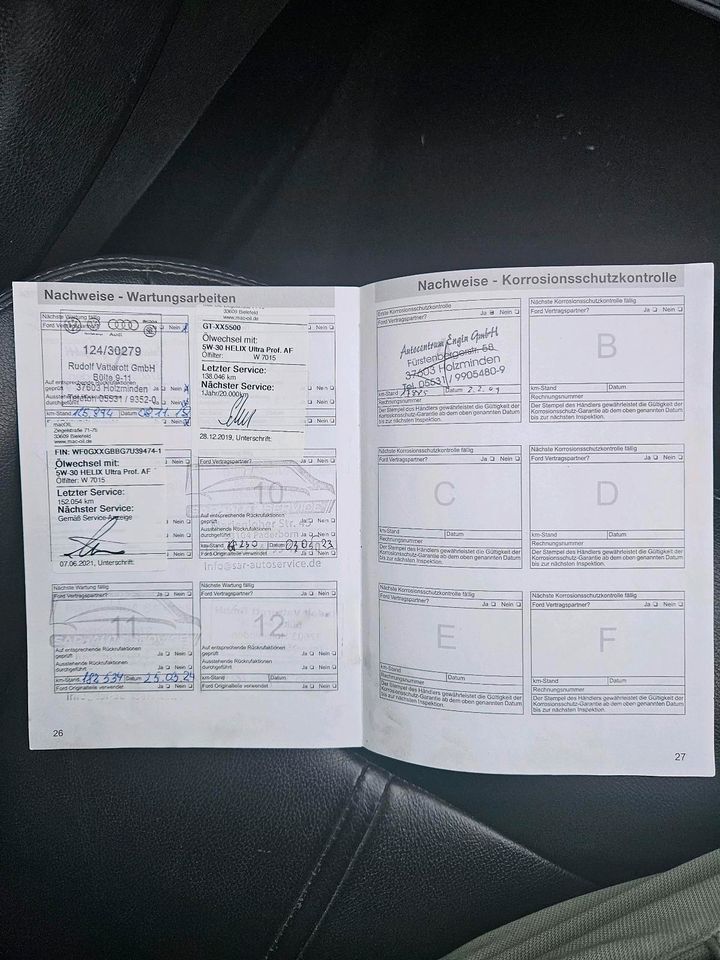 Nachweise - Wartungsarbeiten
Nächste Wartung fällig
Ford Vertragspartner? Nein
Audi
124/30279
Rudolf Vatterott GmbH
Bülte 9-11
37603 Holzminden
Telefon 05531 / 9352-0
Auf entsprechende Rückrufaktionen
geprüft Ja Nein
durchgeführt Ja Nein
km-Stand Datum
macOIL
Ziegelstraße 71-75
33609 Bielefeld
www.mac-oil.de
FIN: WF0GXXGBBG7U39474-1
Ölwechsel mit:
5W-30 HELIX Ultra Prof. AF
Ölfilter: W 7015
Letzter Service:
152.054 km
Nächster Service:
Gemäß Service-Anzeige
07.06.2021, Unterschrift:
33609 Bielefeld
www.mac-oil.de
GT-XX5500
Ölwechsel mit:
5W-30 HELIX Ultra Prof. AF
Ölfilter: W 7015
Letzter Service:
138.046 km
Nächster Service:
1Jahr/20.000km
28.12.2019, Unterschrift:
Ford Vertragspartner? Ja Nein
10
Auf entsprechende Rückrufaktionen
geprüft Ja Nein
Ausstehende Rückrufaktionen
km-Stand Datum
Ford Originalteile verwendet Ja Nein
info@sar-autoservice.de
Nächste Wartung fällig
Ford Vertragspartner? Ja Nein
11
Auf entsprechende Rückrufaktionen
geprüft Ja Nein
Ausstehende Rückrufaktionen
durchgeführt Ja Nein
km-Stand 192 534 Datum 25.05.24
Ford Originalteile verwendet Ja Nein
Nächste Wartung fällig
Ford Vertragspartner? Ja Nein
12
Auf entsprechende Rückrufaktionen
geprüft Ja Nein
Ausstehende Rückrufaktionen
durchgeführt Ja Nein
km-Stand Datum
Ford Originalteile verwendet Ja Nein
26
Nachweise - Korrosionsschutzkontrolle
Erste Korrosionsschutzkontrolle
Ford Vertragspartner? Ja Nein
Autocentrum Engin GmbH
Fürstenbergerstr. 58
37603 Holzminden
Tel. 05531 / 9905480-9
km-Stand Datum
Rechnungsnummer
Der Stempel des Händlers gewährleistet die Gültigkeit der
Korrosionsschutz-Garantie ab dem oben genannten Datum
bis zur nächsten Inspektion.
Nächste Korrosionsschutzkontrolle fällig
Ford Vertragspartner? Ja Nein
B
km-Stand Datum
Rechnungsnummer
Der Stempel des Händlers gewährleistet die Gültigkeit der
Korrosionsschutz-Garantie ab dem oben genannten Datum
bis zur nächsten Inspektion.
Nächste Korrosionsschutzkontrolle fällig
Ford Vertragspartner? Ja Nein
C
km-Stand Datum
Rechnungsnummer
Der Stempel des Händlers gewährleistet die Gültigkeit der
Korrosionsschutz-Garantie ab dem oben genannten Datum
bis zur nächsten Inspektion.
Nächste Korrosionsschutzkontrolle fällig
Ford Vertragspartner? Ja Nein
D
km-Stand Datum
Rechnungsnummer
Der Stempel des Händlers gewährleistet die Gültigkeit der
Korrosionsschutz-Garantie ab dem oben genannten Datum
bis zur nächsten Inspektion.
Nächste Korrosionsschutzkontrolle fällig
Ford Vertragspartner? Ja Nein
E
km-Stand Datum
Rechnungsnummer
Der Stempel des Händlers gewährleistet die Gültigkeit der
Korrosionsschutz-Garantie ab dem oben genannten Datum
bis zur nächsten Inspektion.
Nächste Korrosionsschutzkontrolle fällig
Ford Vertragspartner? Ja Nein
F
km-Stand Datum
Rechnungsnummer
Der Stempel des Händlers gewährleistet die Gültigkeit der
Korrosionsschutz-Garantie ab dem oben genannten Datum
bis zur nächsten Inspektion.
27